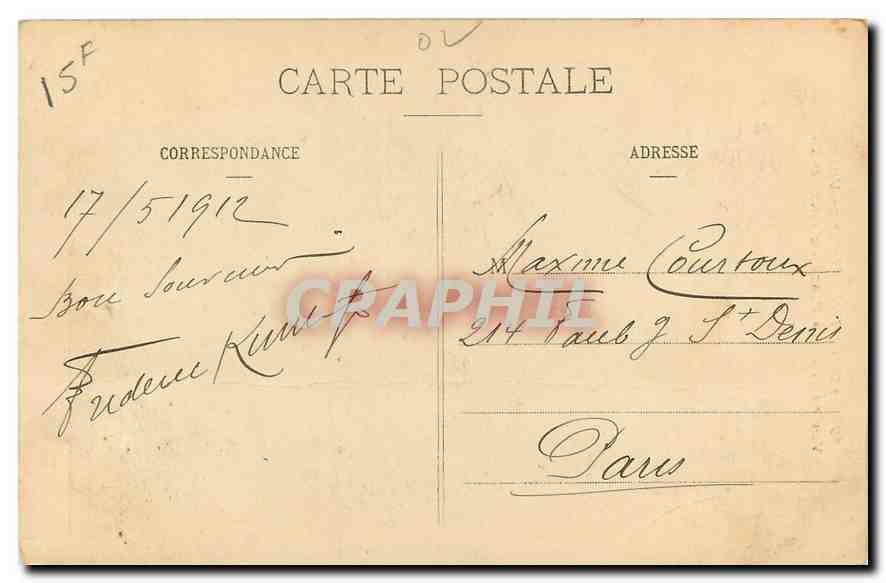 15F
CARTE POSTALE
CORRESPONDANCE
17/5 1912
Bon Souvenir
ADRESSE
Maxime Courtoux
214 Faubg St Denis
Paris
CRAPHIL